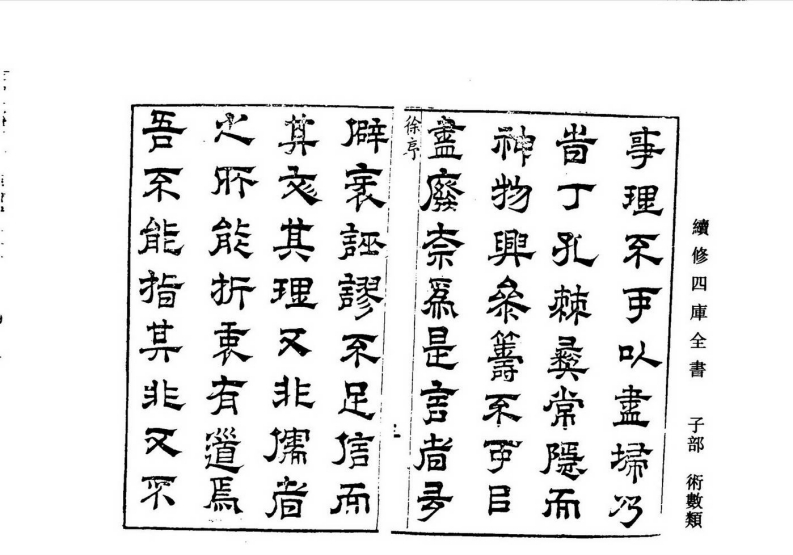 續修四庫全書 子部 術數類
事理不可以盡埽乃
旹丁孔棘彝常隱而
神物興叅籌不可㠯
盡廢柰爲是言者多
徐序
僻衺誣謬不足信而
其文其理又非儒者
之所能折衷有道焉
吾不能指其非又不